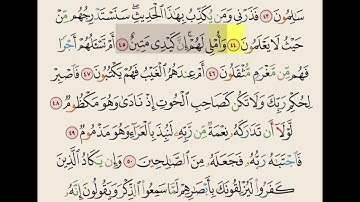 سَـٰلِمُونَ ٤٣ فَذَرْنِى وَمَن يُكَذِّبُ بِهَـٰذَا ٱلْحَدِيثِ ۖ سَنَسْتَدْرِجُهُم مِّنْ
حَيْثُ لَا يَعْلَمُونَ ٤٤ وَأُمْلِى لَهُمْ ۚ إِنَّ كَيْدِى مَتِينٌ ٤٥ أَمْ تَسْـَٔلُهُمْ أَجْرًا
فَهُم مِّن مَّغْرَمٍ مُّثْقَلُونَ ٤٦ أَمْ عِندَهُمُ ٱلْغَيْبُ فَهُمْ يَكْتُبُونَ ٤٧ فَٱصْبِرْ
لِحُكْمِ رَبِّكَ وَلَا تَكُن كَصَاحِبِ ٱلْحُوتِ إِذْ نَادَىٰ وَهُوَ مَكْظُومٌ ٤٨
لَّوْلَآ أَن تَدَٰرَكَهُۥ نِعْمَةٌ مِّن رَّبِّهِۦ لَنُبِذَ بِٱلْعَرَآءِ وَهُوَ مَذْمُومٌ ٤٩
فَٱجْتَبَـٰهُ رَبُّهُۥ فَجَعَلَهُۥ مِنَ ٱلصَّـٰلِحِينَ ٥٠ وَإِن يَكَادُ ٱلَّذِينَ
كَفَرُوا۟ لَيُزْلِقُونَكَ بِأَبْصَـٰرِهِمْ لَمَّا سَمِعُوا۟ ٱلذِّكْرَ وَيَقُولُونَ إِنَّهُۥ